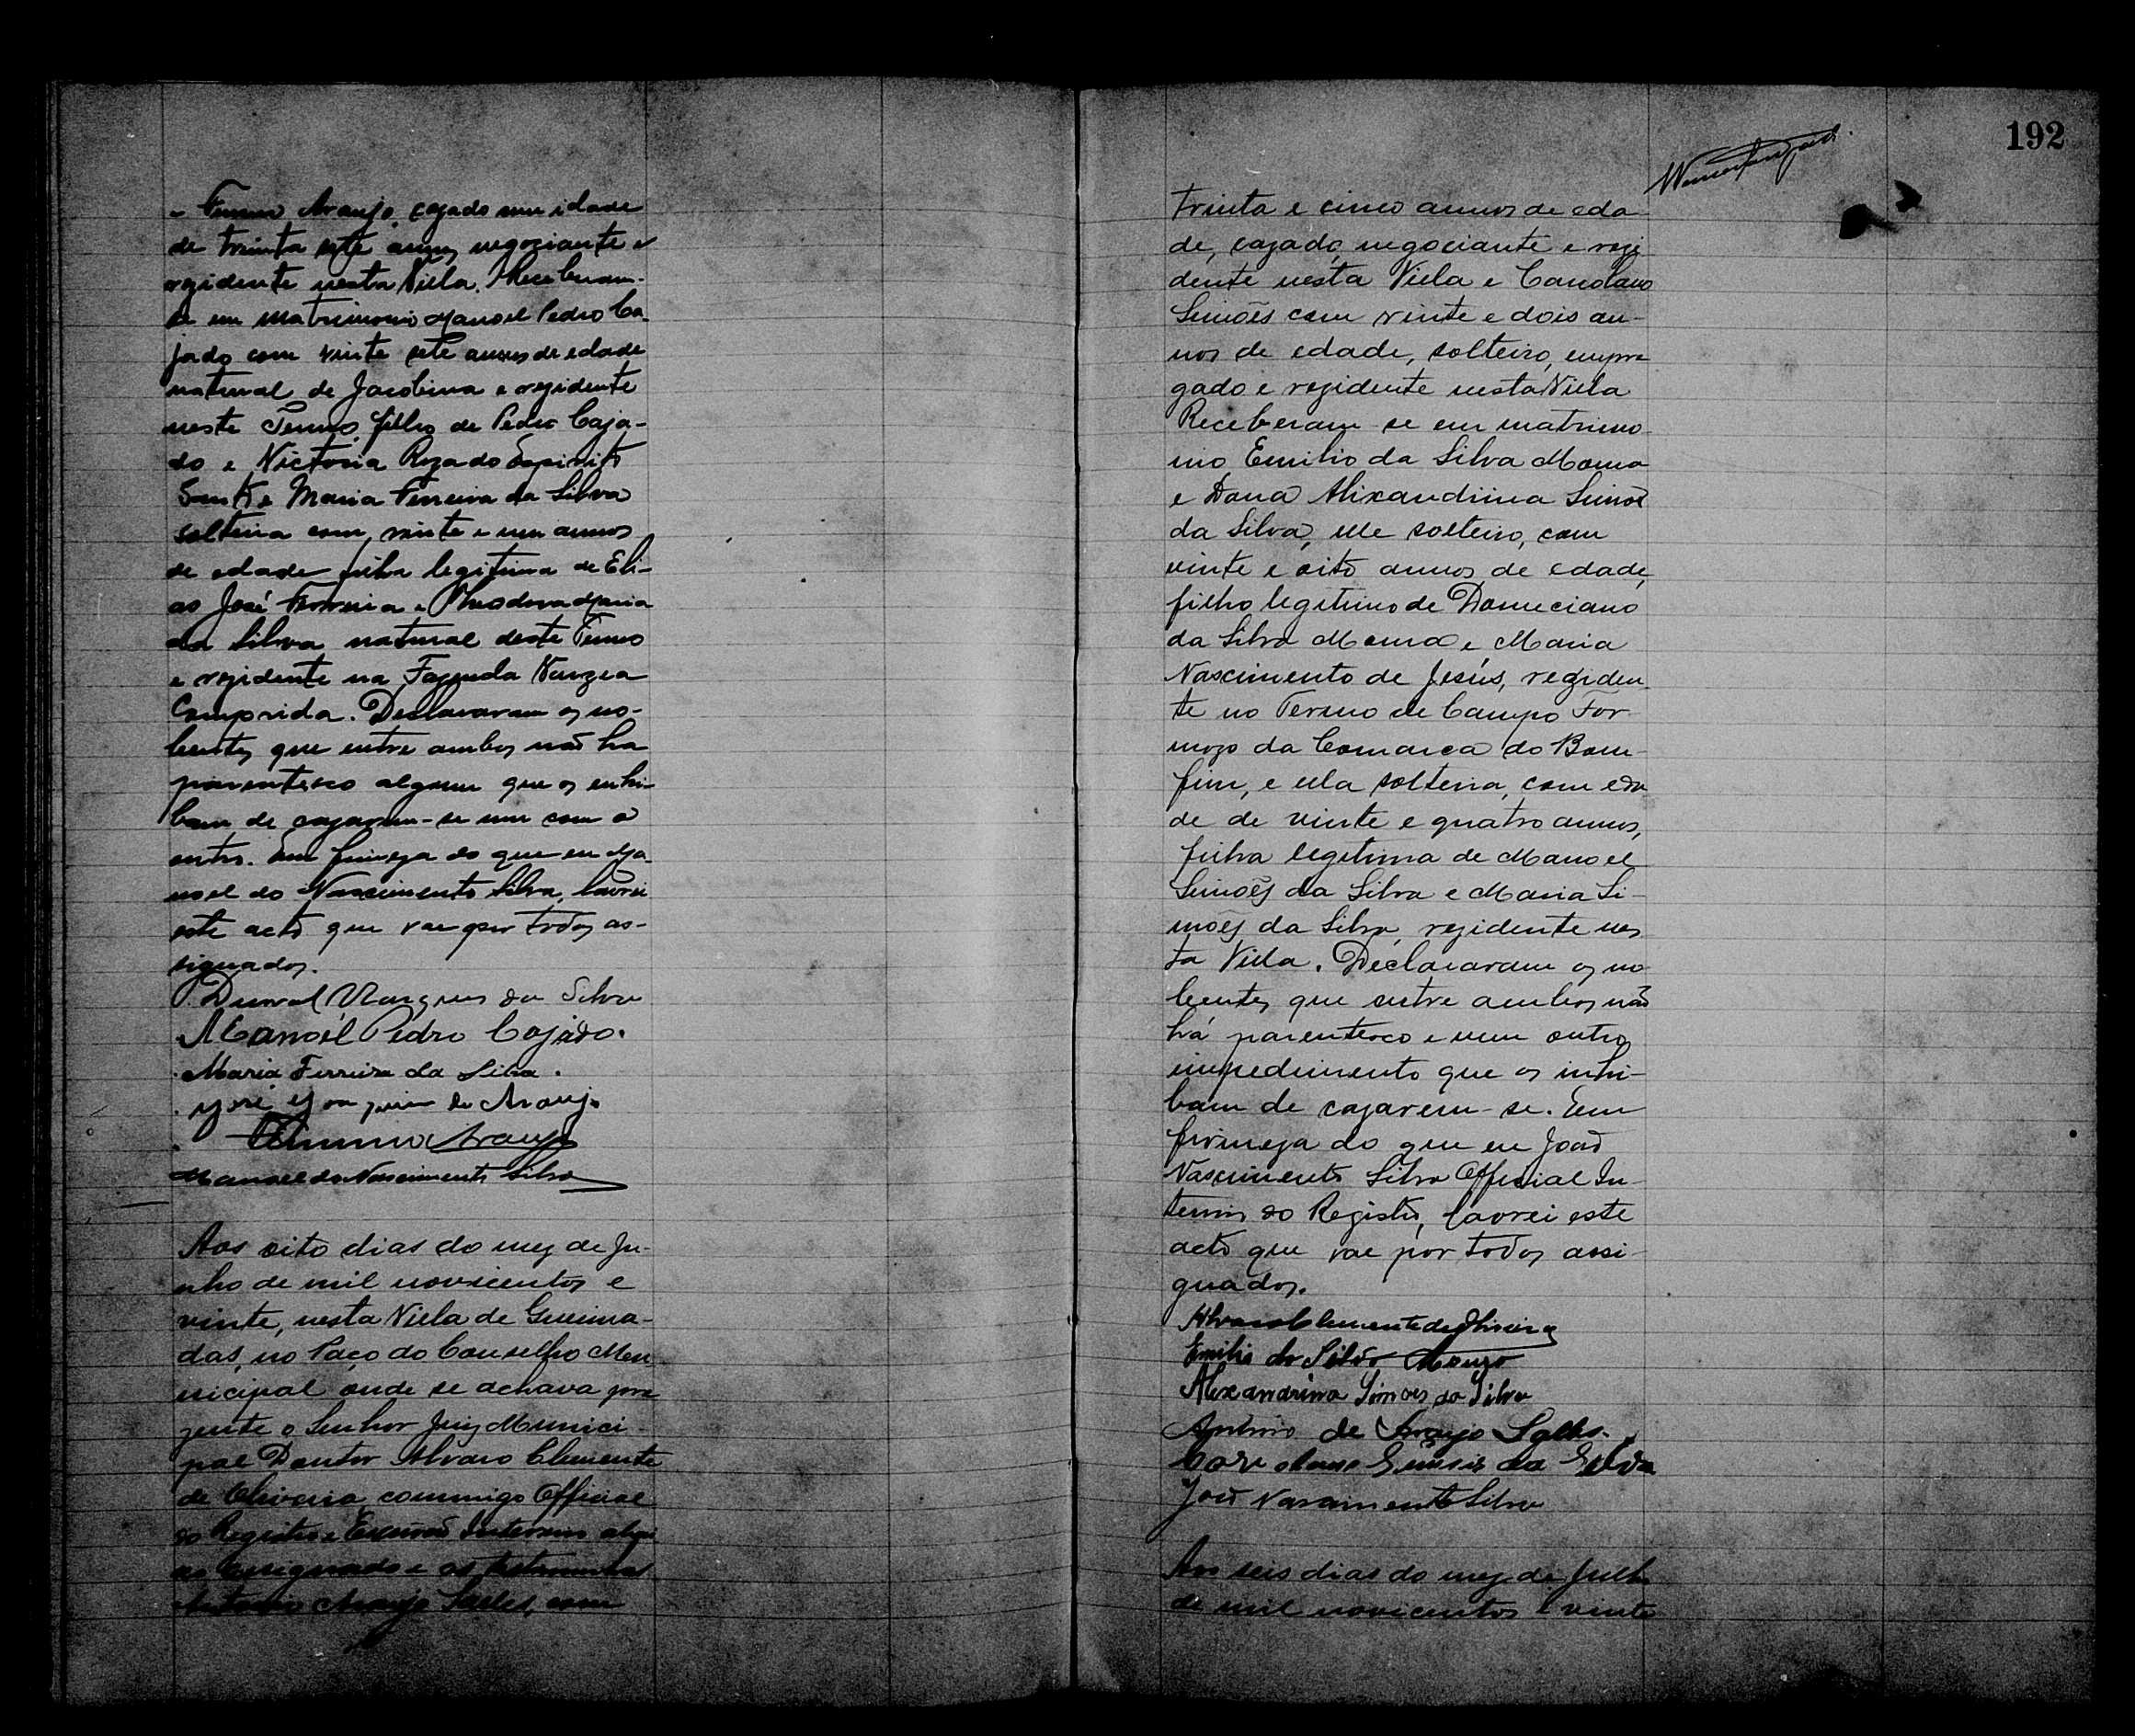 - Firmino Araujo, cazado com idade
de trinta sete annos, negociante e
rezidente nesta Villa. Receberam-
se em matrimonio Manoel Pedro Ca-
jado com vinte sete annos de edade
natural de Jacobina e rezidente
neste Termo, filho de Pedro Caja-
do e Victoria Roza do Espirito
Santo e Maria Ferreira da Silva
solteira com vinte e um annos
de edade filha legitima de Eli-
as José Ferreira e Theodora Maria
da Silva natural deste Termo
e rezidente na Fazenda Varzea
Comprida. Declararam os no-
bentes que entre ambos não ha
parentesco algum que os enhi-
bam de cazarem-se um com o
outro. Em firmeza do que eu Ma-
noel do Nascimento Silva, lavrei
este acto que vae por todos as-
signados.
Durval Marques da Silva
Manoel Pedro Cajado.
Maria Ferreira da Silva.
José Joaquim de Araujo
Firmino Araujo
Manoel do Nascimento Silva
Aos oito dias do mez de Ju-
nho de mil novicentos e
vinte, nesta Villa de Queima-
das, no Paço do Conselho Mu-
nicipal onde se achava pre
zente o Senhor Juiz Munici-
pal Doutor Alvaro Clemente
de Oliveira, commigo Official
do Registro e Escrivão Interino abai
xo assignado e as testemunhas
Antonio Araujo Salles, com
192
trinta e cinco annos de eda
de, cazado, negociante e rezi
dente nesta Villa e Coriolano
Simões com vinte e dois an-
nos de edade, solteiro, empre
gado e rezidente nesta Villa
Receberam-se em matrimo-
nio Emilio da Silva Moura
e Dona Alixandrina Simões
da Silva, elle solteiro, com
vinte e oito annos de edade,
filho legitimo de Domiciano
da Silva Moura e Maria
Nascimento de Jesús, reziden-
te no Termo de Campo For-
mozo da Comarca do Bom-
fim, e ella solteira, com eda
de de vinte e quatro annos,
filha legitima de Manoel
Simões da Silva e Maria Si-
mões da Silva, rezidente nes
ta Villa. Declararam os no
bentes que entre ambos não
há parentesco e nem outro
impedimento que os inhi-
bam de cazarem-se. Em
firmeza do que eu João
Nascimento Silva Official In-
terino do Registro, lavrei este
acto que vae por todos assi-
gnados.
Alvaro Clemente de Oliveira
Emilio da Silva Moura
Alexandrina Simões da Silva
Antonio de Araujo Salles.
Coriolano Simões da Silva
João Nascimento Silva
Aos seis dias do mez de Julho
de mil novicentos e vinte